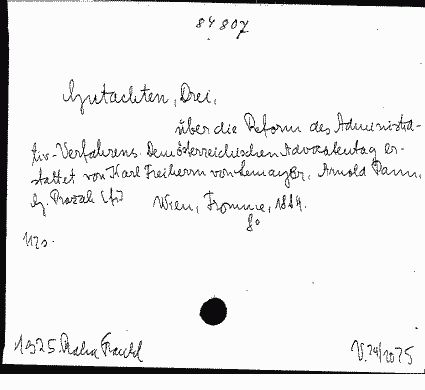 84 807
Gutachten, Drei,
über die Reform des Administra-
tiv-Verfahrens. Dem österreichischen Advocatentag er-
stattet von Karl Freiherrn von Lemayer, Arnold Pann,
Wien, Fromme, 1884.
8°
1925. Praha
V.24/2075